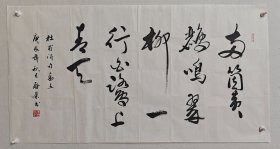 兩箇黃
鸝鳴翠
柳一
行白鷺上
青天
杜甫詩句
庚辰年秋
書